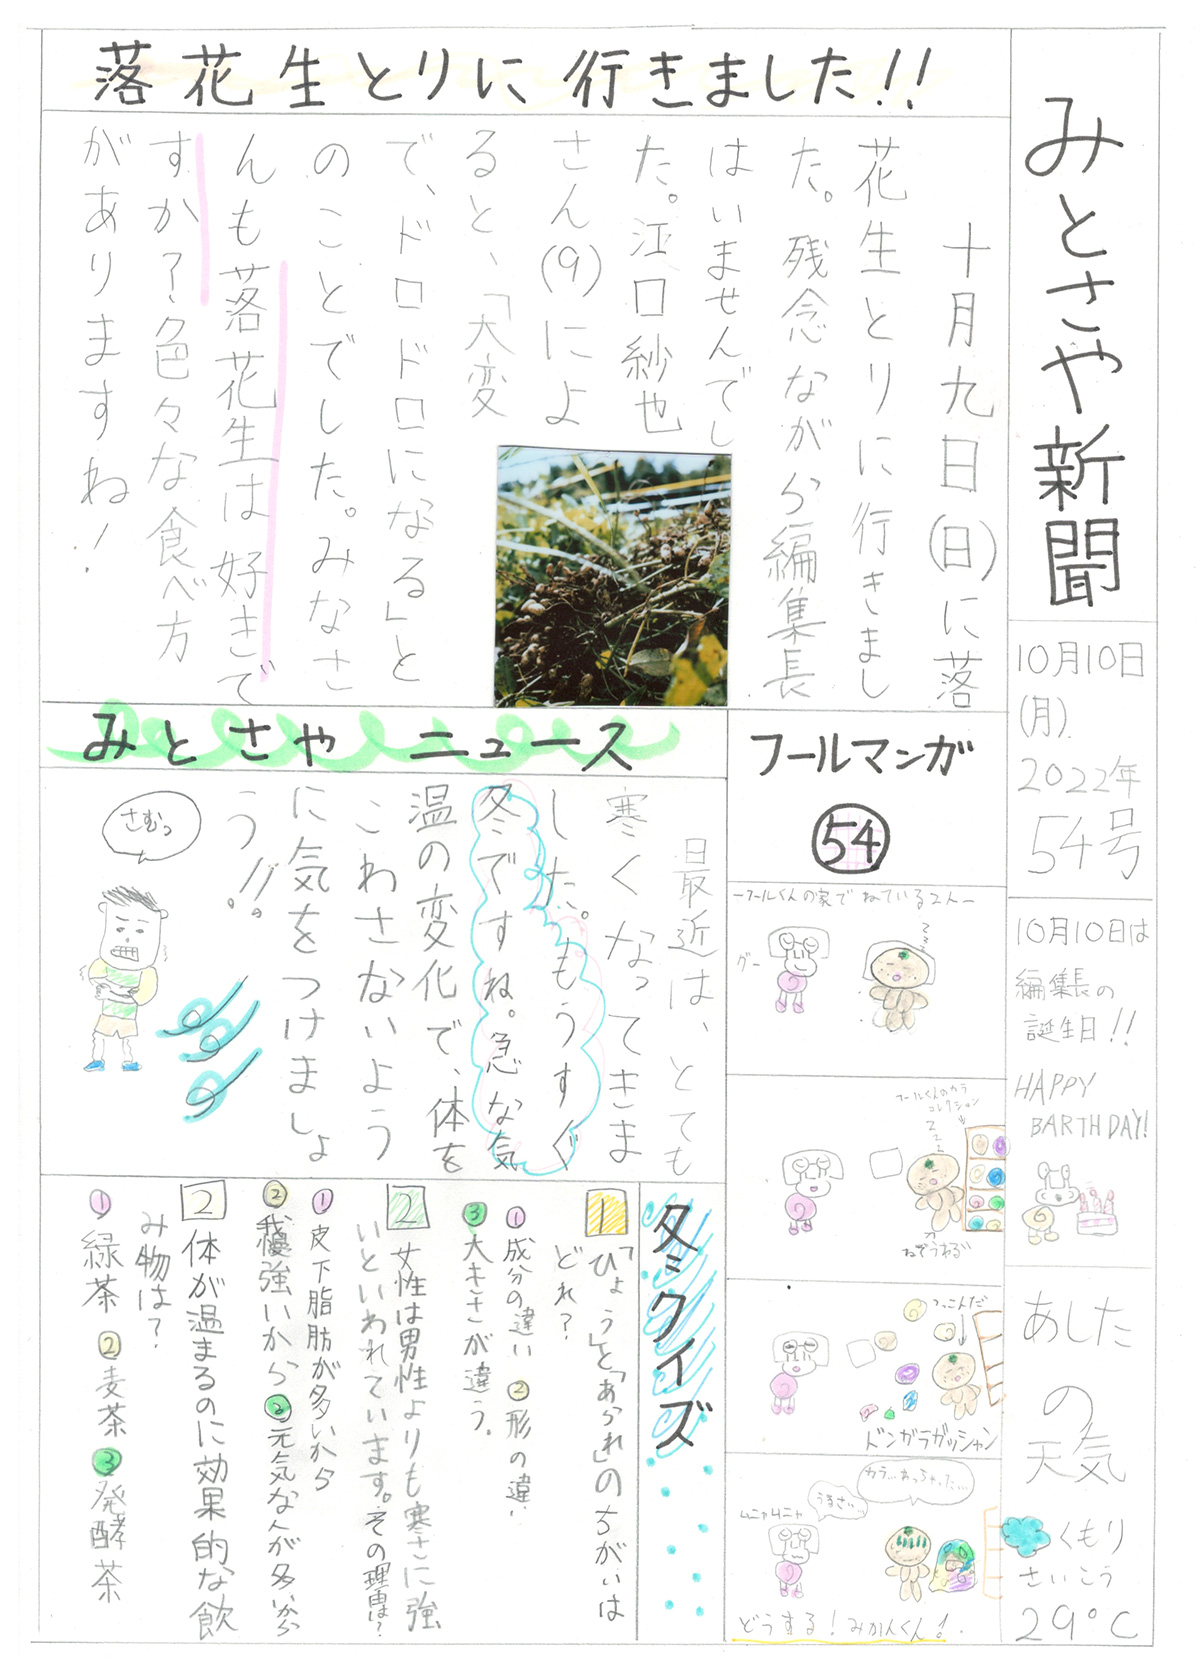 みとさや新聞
10月10日
(月)
2022年
54号
10月10日は
編集長の
誕生日!!
HAPPY
BARTHDAY!
あした
の
天気
くもり
さいこう
29°C
落花生とりに行きました!!
十月九日(日)に落
花生とりに行きまし
た。残念ながら編集長
はいませんでし
た。江口紗也
さん(9)によ
ると、「大変
で、ドロドロになる」と
のことでした。みなさ
んも落花生は好きで
すか?色々な食べ方
がありますね!
フールマンガ
54
ーフールくんの家でねている2人ー
グー
フールくんのカラ
コレクション
ZZZ
ねぞうわるっ
つっこんだ
ドンガラガッシャン
カラ…わっちゃった…
うるさ…
ムニャムニャ
どうする!みかんくん!
みとさやニュース
最近は、とても
寒くなってきま
した。もうすぐ
冬ですね。急な気
温の変化で、体を
こわさないよう
に気をつけましょ
う!!
さむっ
冬クイズ
1 「ひょう」と「あられ」のちがいは
どれ?
①成分の違い ②形の違い
③大きさが違う。
2 女性は男性よりも寒さに強
いといわれています。その理由は?
①皮下脂肪が多いから
②我慢強いから ②元気な人が多いから
2 体が温まるのに効果的な飲
み物は?
①緑茶 ②麦茶 ③発酵茶